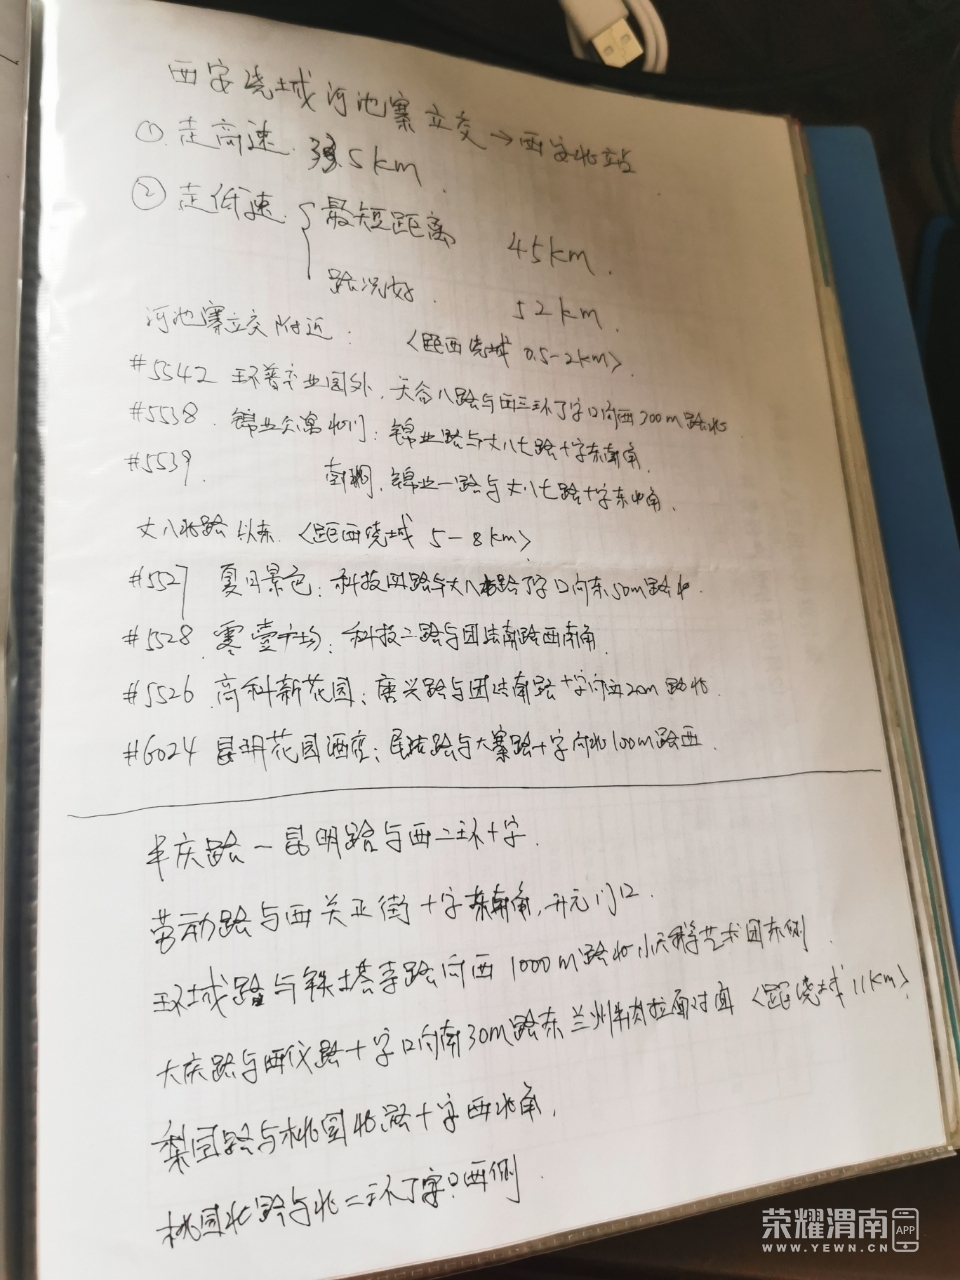 西安绕城河池寨立交→西安北站
① 走高速 33.5km.
② 走低速 最短距离 45km.
路况好. 52km.
河池寨立交附近: <距西绕城 0.5-2km>
#5542 环普产业园外, 天谷八路与西三环丁字口向西300m路北
#5538 锦业公寓北门: 锦业路与丈八七路十字东南角.
#5539 南侧, 锦业一路与丈八七路十字东北角.
丈八北路以东. <距西绕城 5-8km>
#5527 夏日景色: 科技四路与丈八北路丁字口向东50m路北.
#5528 零壹广场: 科技二路与团结南路西南角.
#5526 高科新花园: 唐兴路与团结南路十字向西20m路北.
#6024 昆明花园酒店: 民洁路与大寨路十字向北100m路西.
丰庆路-昆明路与西二环十字.
劳动路与西关正街十字东南角, 开元门口.
环城路与铁塔寺路向西1000m路北小天鹅艺术团东侧.
大庆路与西仪路十字口向南30m路东兰州牛肉拉面对面 <距绕城11km>
梨园路与桃园北路十字西北角.
桃园北路与北二环丁字口西侧.
荣耀渭南 APP
WWW.YEWN.CN